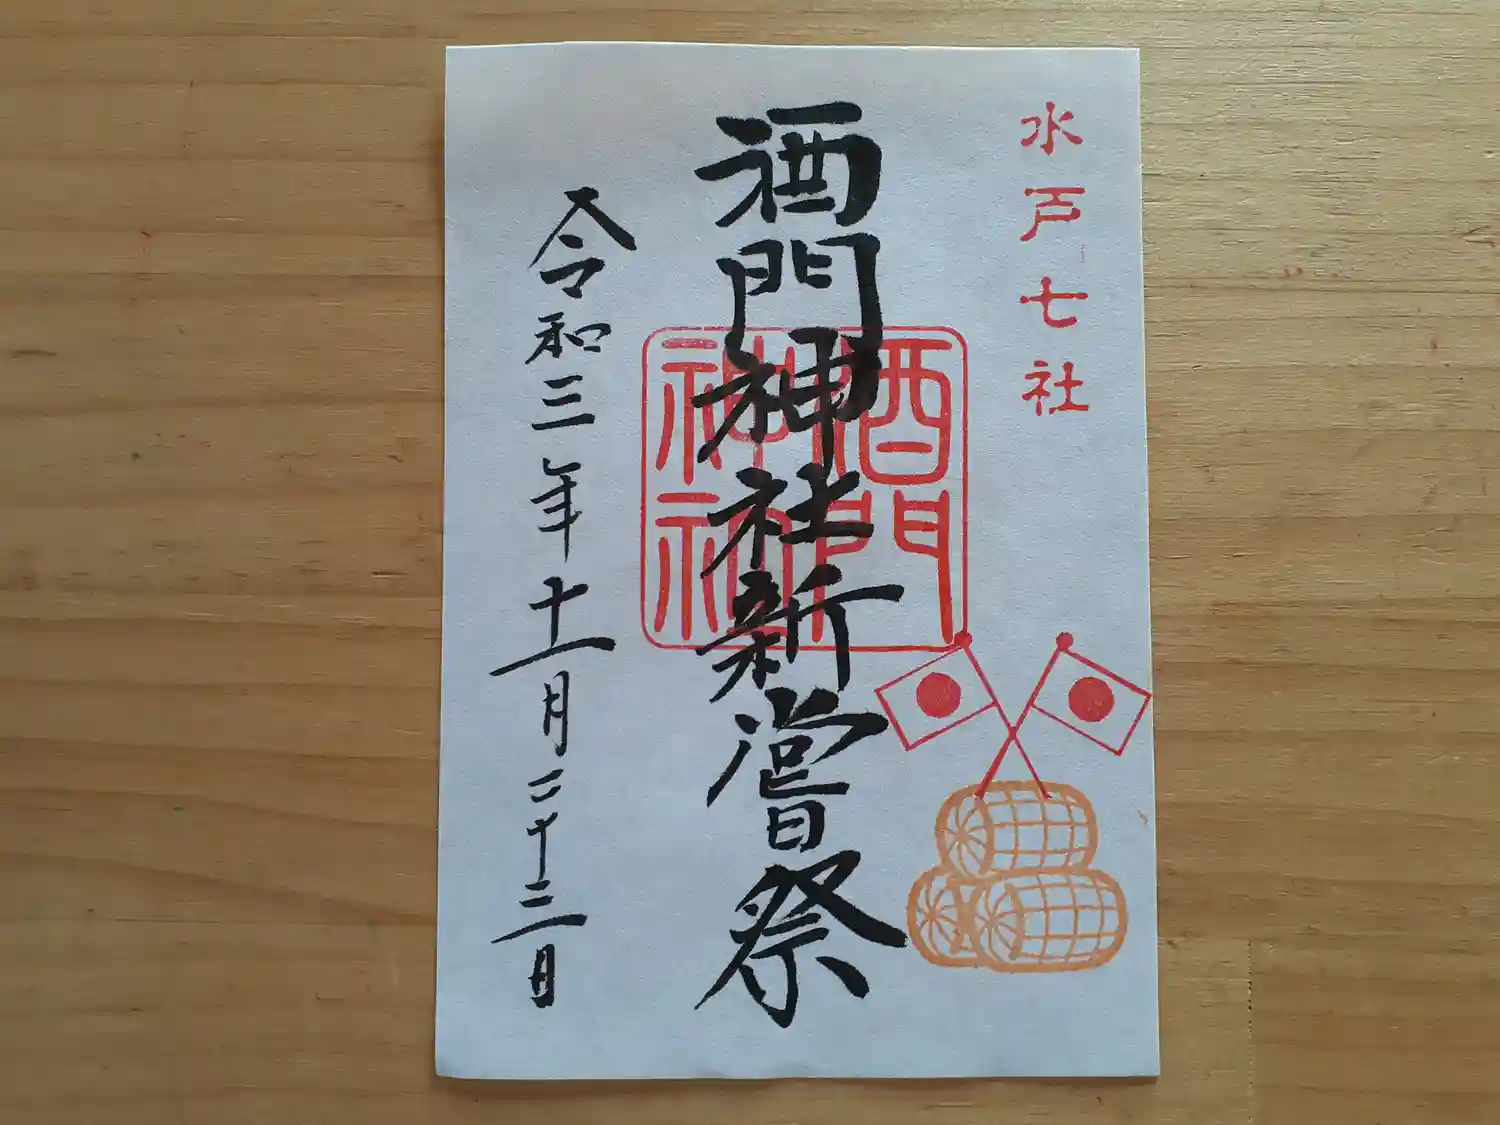 水戸七社
酒門神社新嘗祭
酒門
神社
令和三年十一月二十三日